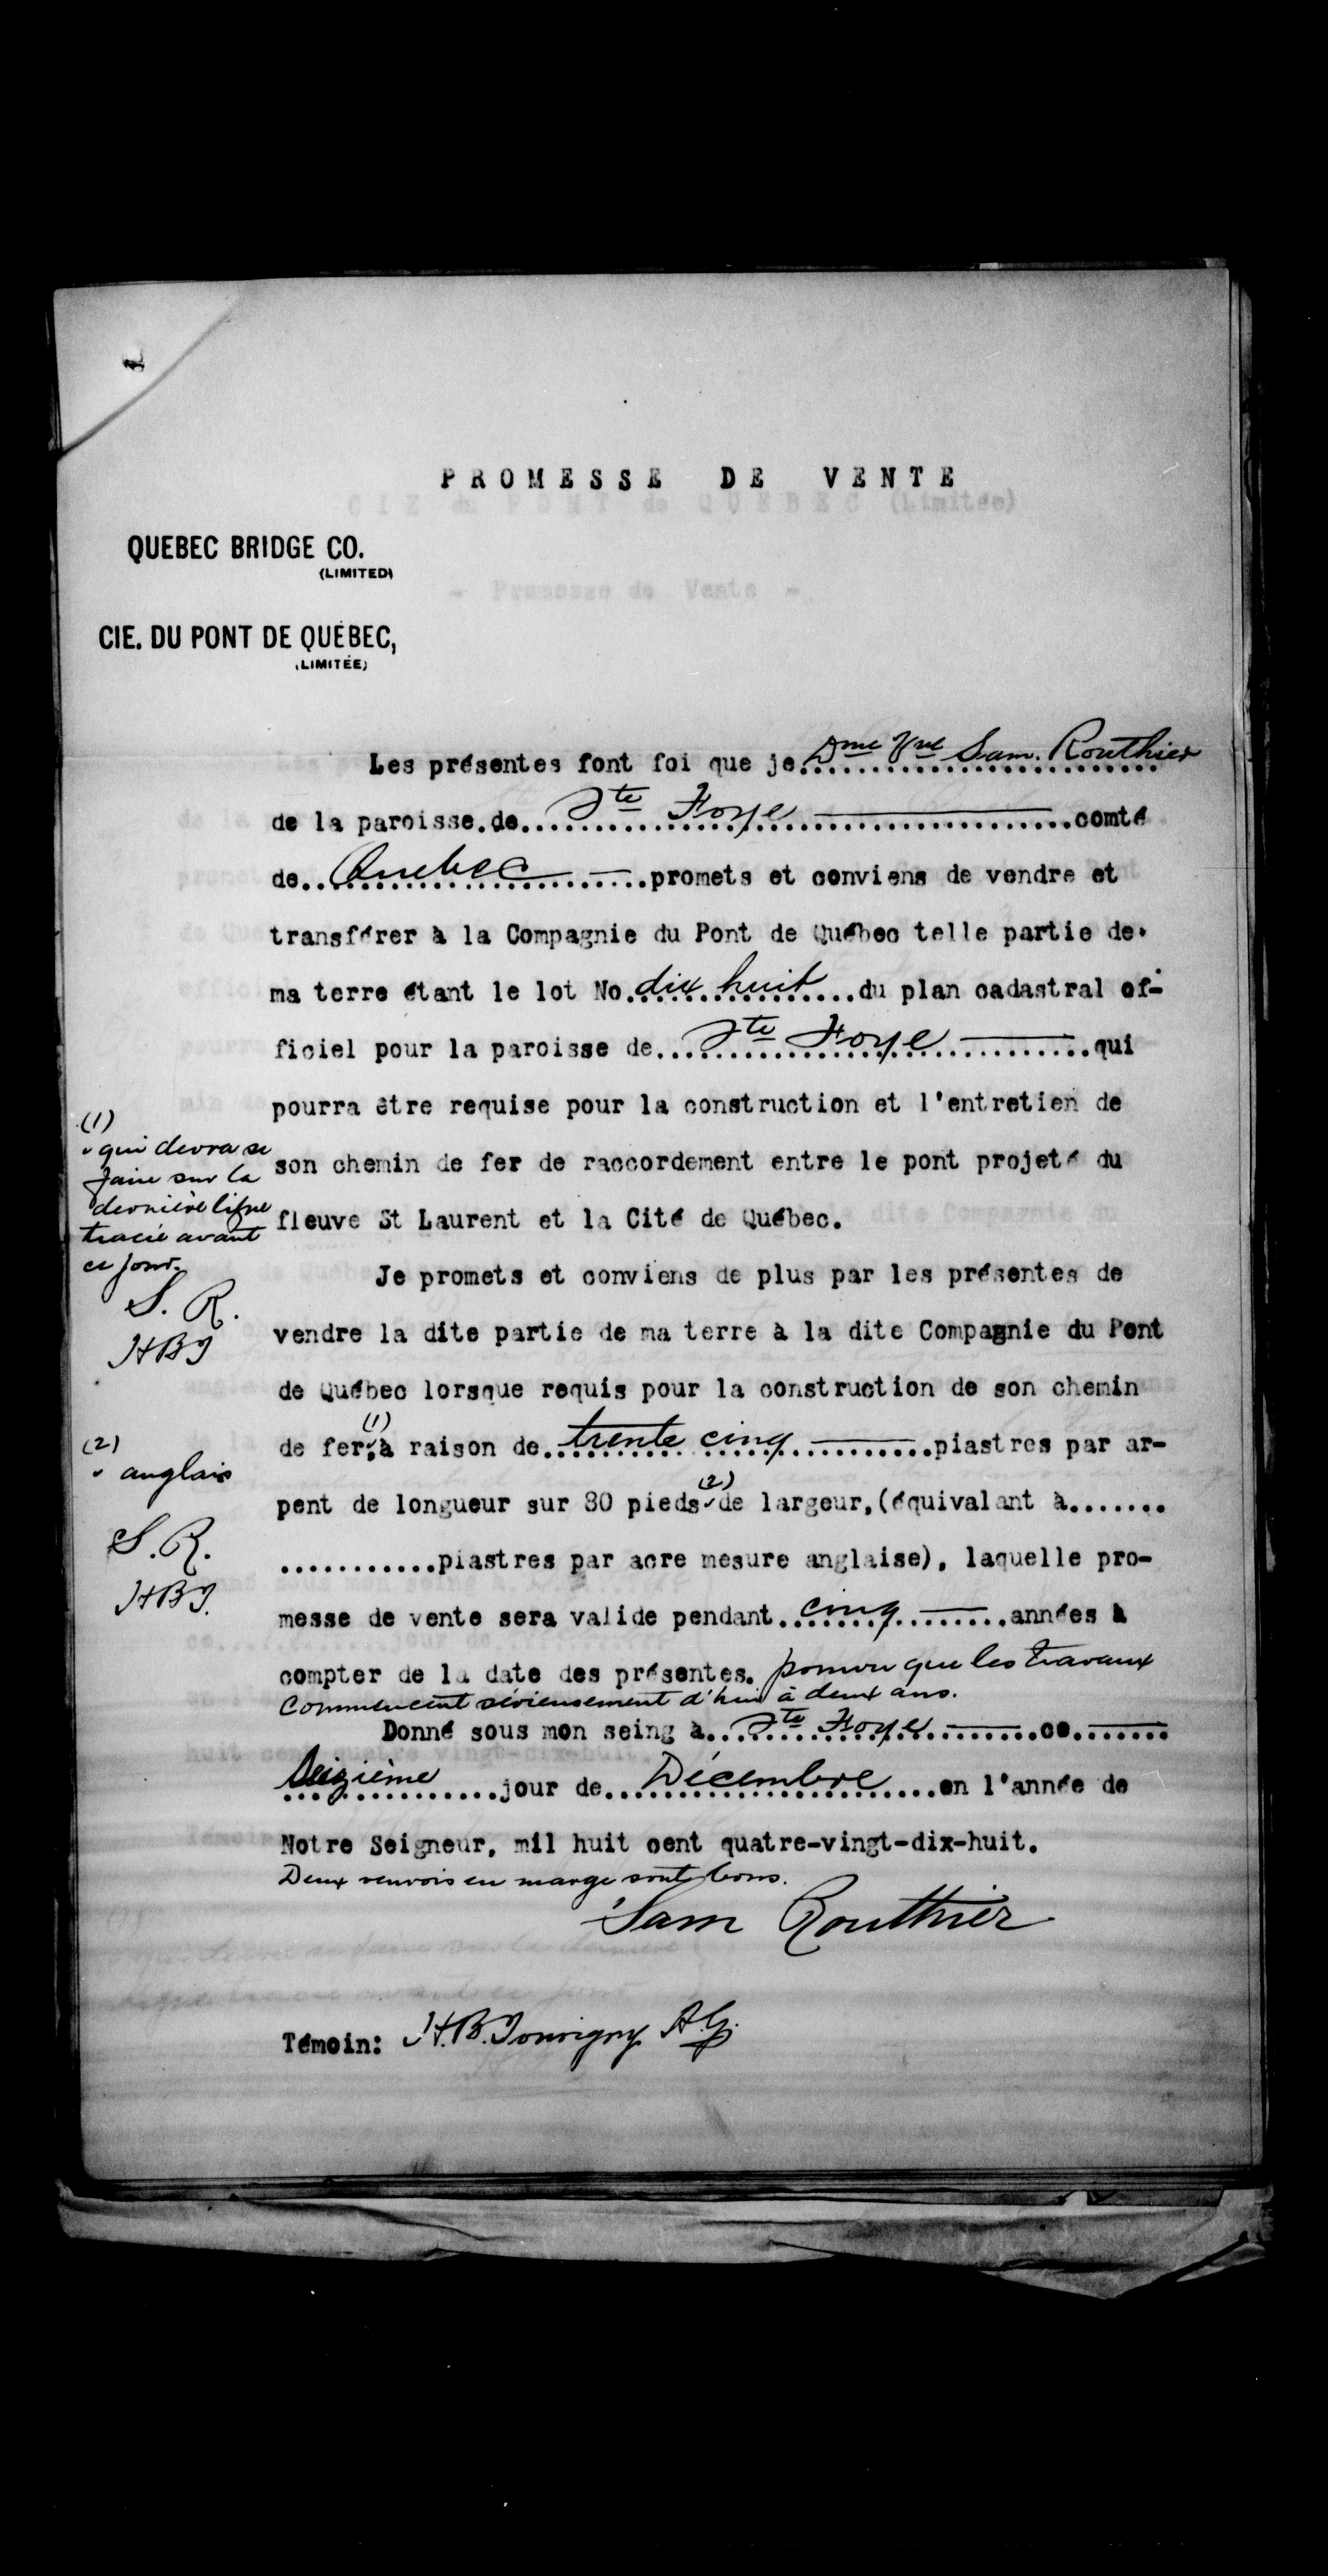 PROMESSE DE VENTE
QUEBEC BRIDGE CO.
(LIMITED)
CIE. DU PONT DE QUÉBEC,
(LIMITÉE)
Les présentes font foi que je Dme Vve Sam. Routhier
de la paroisse.de Ste Foye comté
de Quebec promets et conviens de vendre et
transférer à la Compagnie du Pont de Québec telle partie de
ma terre étant le lot No. dix huit du plan cadastral of-
ficiel pour la paroisse de Ste Foye qui
pourra être requise pour la construction et l'entretien de
son chemin de fer de raccordement entre le pont projeté du
fleuve St Laurent et la Cité de Québec.
Je promets et conviens de plus par les présentes de
vendre la dite partie de ma terre à la dite Compagnie du Pont
de Québec lorsque requis pour la construction de son chemin
de fer, (1) à raison de trente cinq piastres par ar-
pent de longueur sur 80 pieds (2) de largeur, (équivalant à.......
...........piastres par acre mesure anglaise), laquelle pro-
messe de vente sera valide pendant cinq années à
compter de la date des présentes. pourvu que les travaux
commencent sérieusement d'hui à deux ans.
Donné sous mon seing à Ste Foye ce
Seizième jour de Décembre en l'année de
Notre Seigneur, mil huit cent quatre-vingt-dix-huit.
Deux renvois en marge sont bons.
Sam Routhier
Témoin: H.B. Tourigny A.G.
(1)
qui devra se
faire sur la
dernière ligne
tracée avant
ce jour.
S. R.
HBT
(2)
anglais
S. R.
HBT.